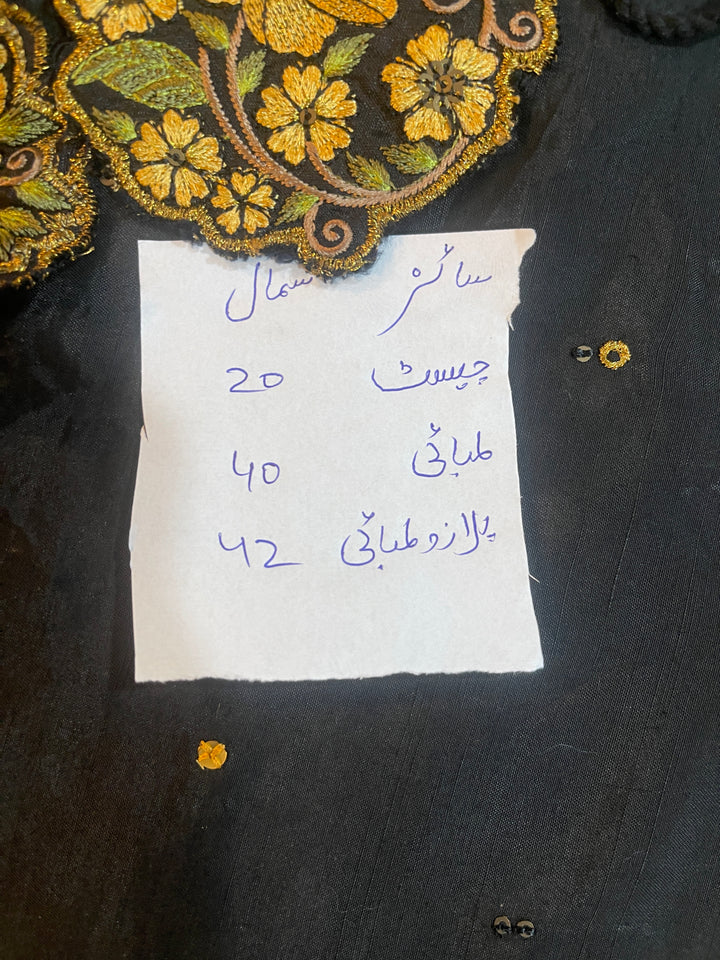 سائز سمال
چیسٹ 20
لمبائی 40
پلازو لمبائی 42